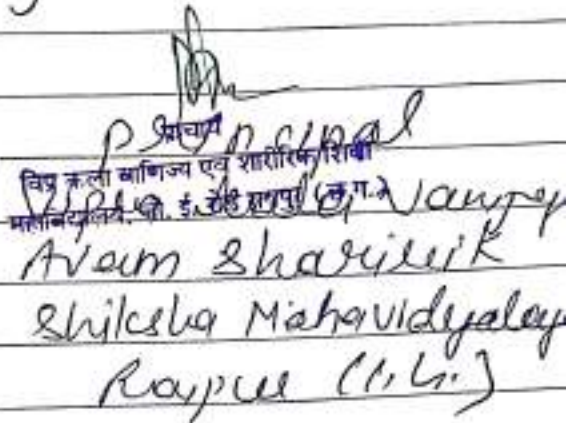 Principal
प्राचार्य
विप्र कला वाणिज्य एवं शारीरिक शिक्षा
महाविद्यालय, जी. ई. रोड रायपुर (छ.ग.)
Vipra Kala, Vanijya
Avam Sharirik
Shiksha Mahavidyalay
Raipur (C.G.)